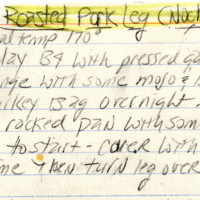 Roasted Pork Leg (Noch
al temp 170°
day B4 with pressed ga
nge with some mojo &
rkey Bag overnight.
racked pan with som
to start - cover with
me then turn leg over